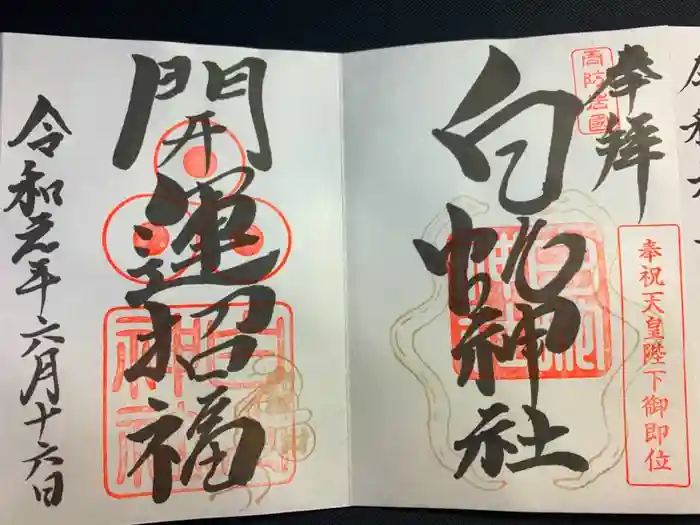 奉拝
奉祝天皇陛下御即位
周防岩国
白蛇神社
開運招福
令和元年六月十六日